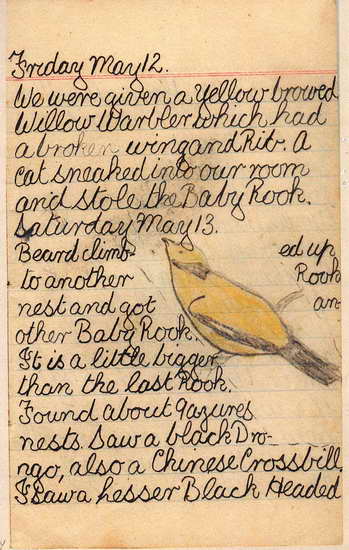 Friday May 12.
We were given a Yellow browed
Willow Warbler which had
a broken wing and Rib. A
cat sneaked into our room
and stole the Baby Rook.
Saturday May 13.
Beard climb- ed up
to another Rook
nest and got an-
other Baby Rook.
It is a little bigger
than the last Rook.
Found about 9 azures
nests. Saw a black Dro-
ngo, also a Chinese Crossbill.
I saw a Lesser Black Headed